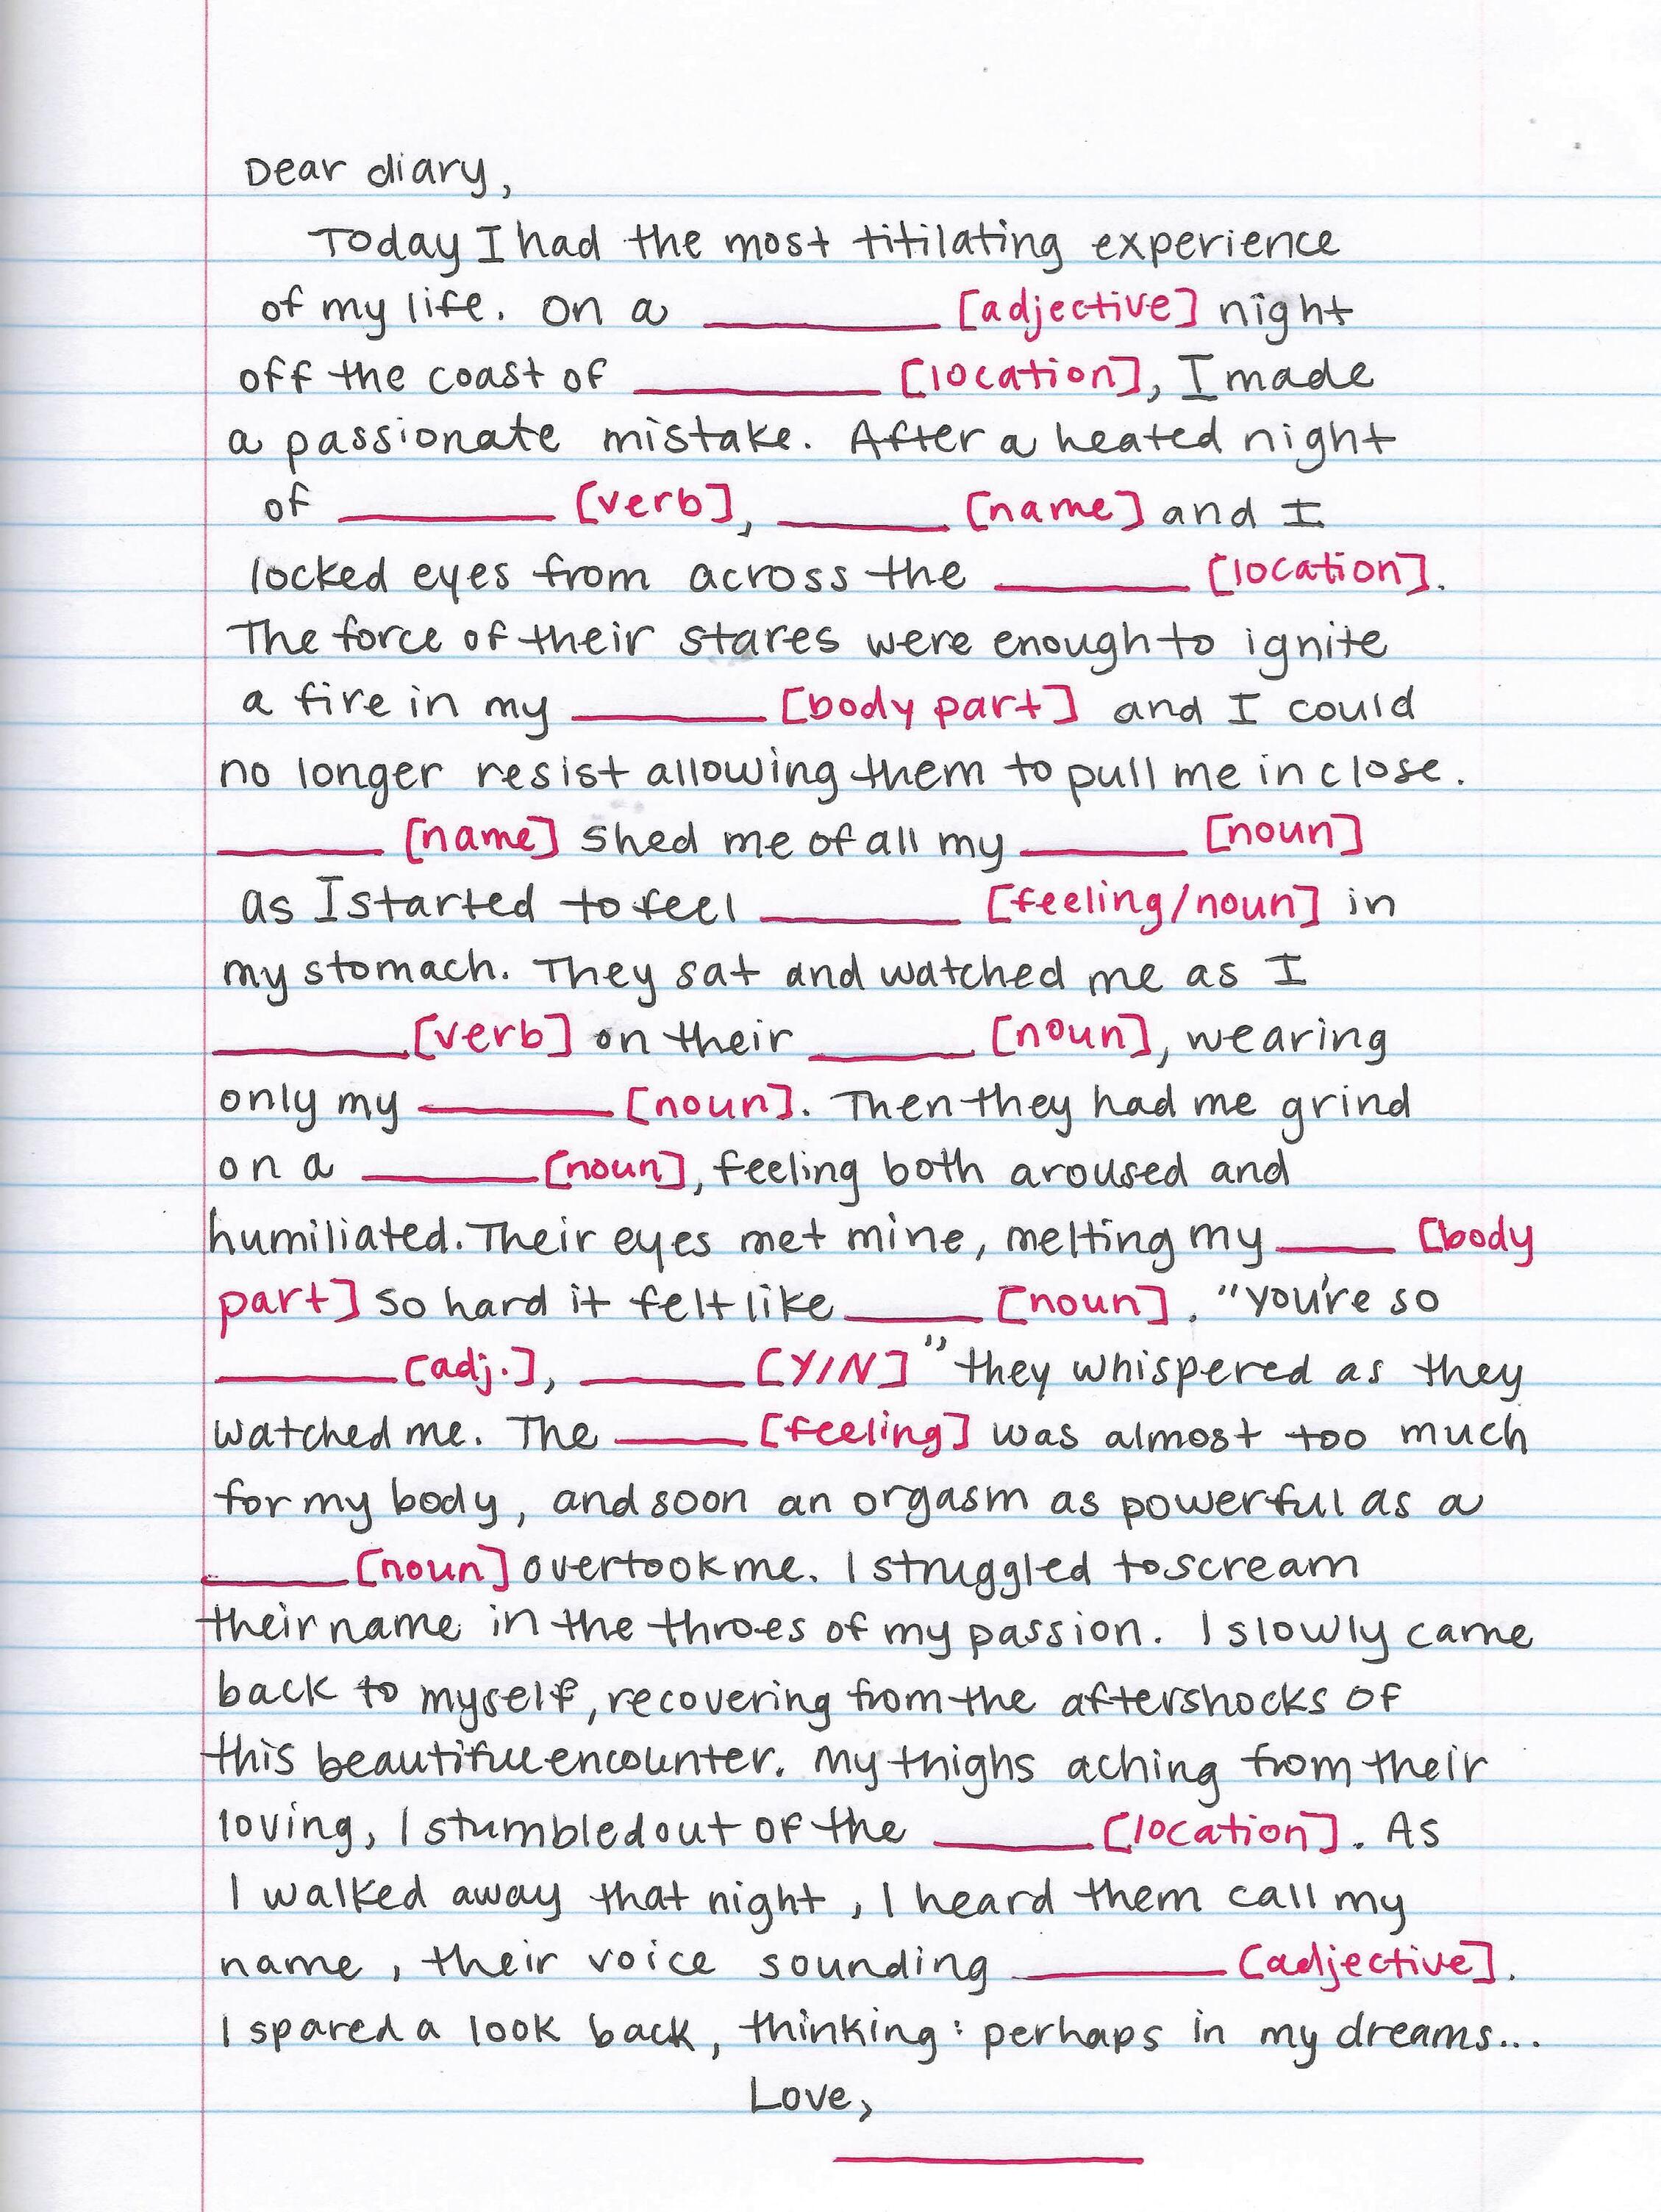 Dear diary,
Today I had the most titilating experience
of my life. On a ______ [adjective] night
off the coast of ______ [location], I made
a passionate mistake. After a heated night
of ______ [verb], ______ [name] and I
locked eyes from across the ______ [location].
The force of their stares were enough to ignite
a fire in my ______ [body part] and I could
no longer resist allowing them to pull me in close.
______ [name] shed me of all my ______ [noun]
as I started to feel ______ [feeling/noun] in
my stomach. They sat and watched me as I
______ [verb] on their ______ [noun], wearing
only my ______ [noun]. Then they had me grind
on a ______ [noun], feeling both aroused and
humiliated. Their eyes met mine, melting my ______ [body
part] so hard it felt like ______ [noun]. "You're so
______ [adj.], ______ [Y/N]" they whispered as they
watched me. The ______ [feeling] was almost too much
for my body, and soon an orgasm as powerful as a
______ [noun] overtook me. I struggled to scream
their name in the throes of my passion. I slowly came
back to myself, recovering from the aftershocks of
this beautiful encounter. My thighs aching from their
loving, I stumbled out of the ______ [location]. As
I walked away that night, I heard them call my
name, their voice sounding ______ [adjective].
I spared a look back, thinking: perhaps in my dreams...
Love,
______